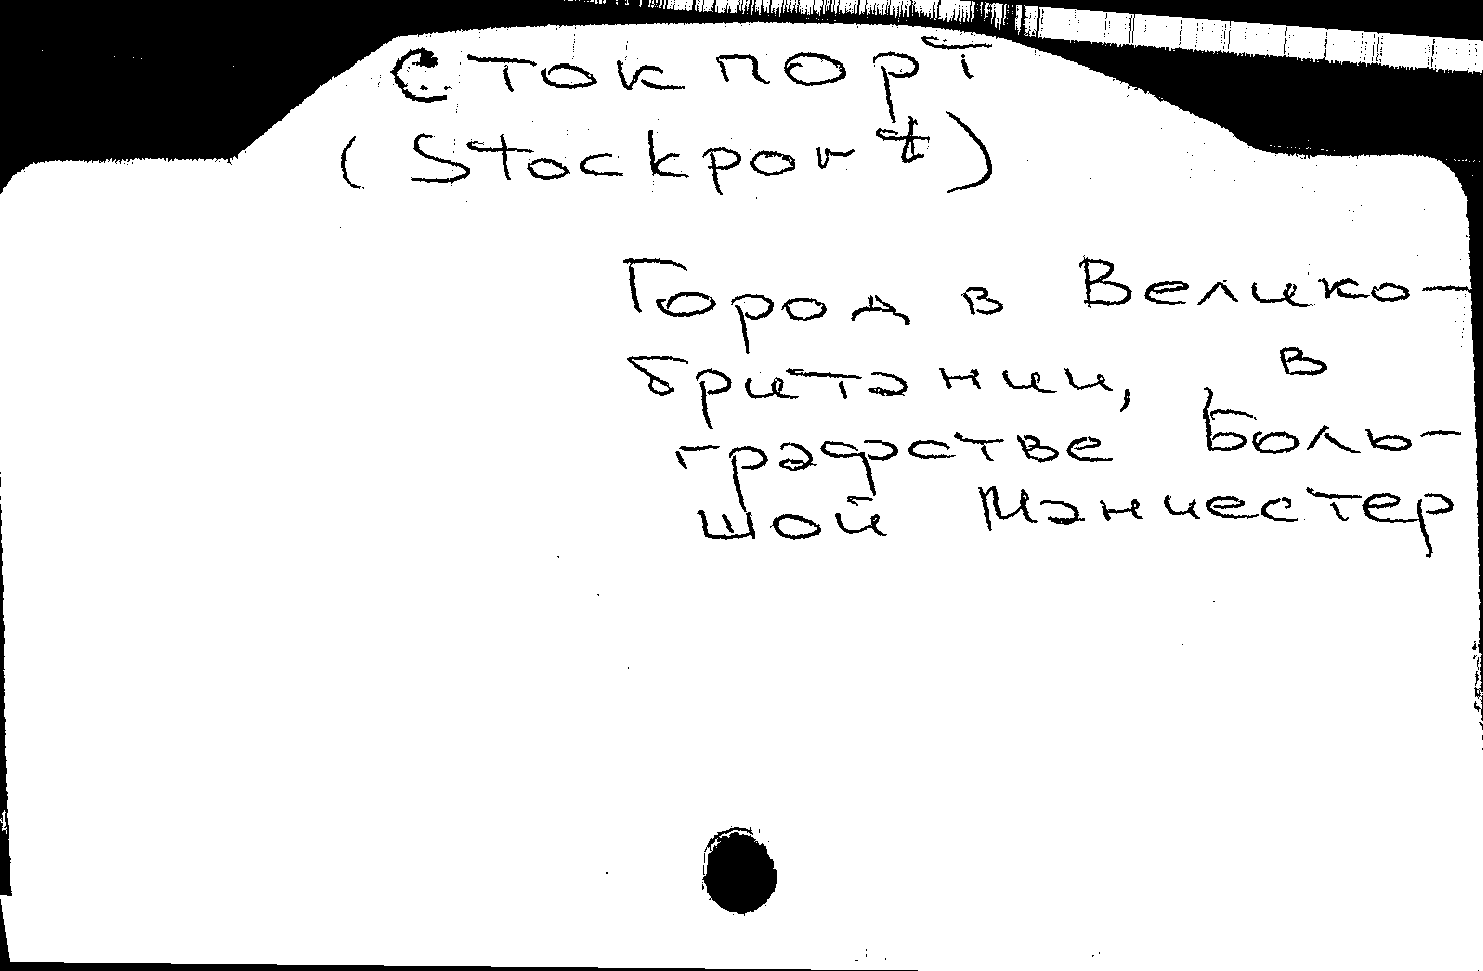 Стокпорт
(Stockport)
Город в Велико-
британии, в
графстве Боль-
шой Манчестер